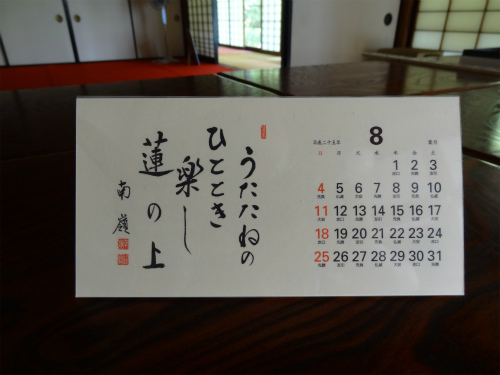 うたたねの
ひととき
楽し
蓮の上
南嶺
平成二十五年 8 葉月
日 月 火 水 木 金 土
1 2 3
4 5 6 7 8 9 10
11 12 13 14 15 16 17
18 19 20 21 22 23 24
25 26 27 28 29 30 31